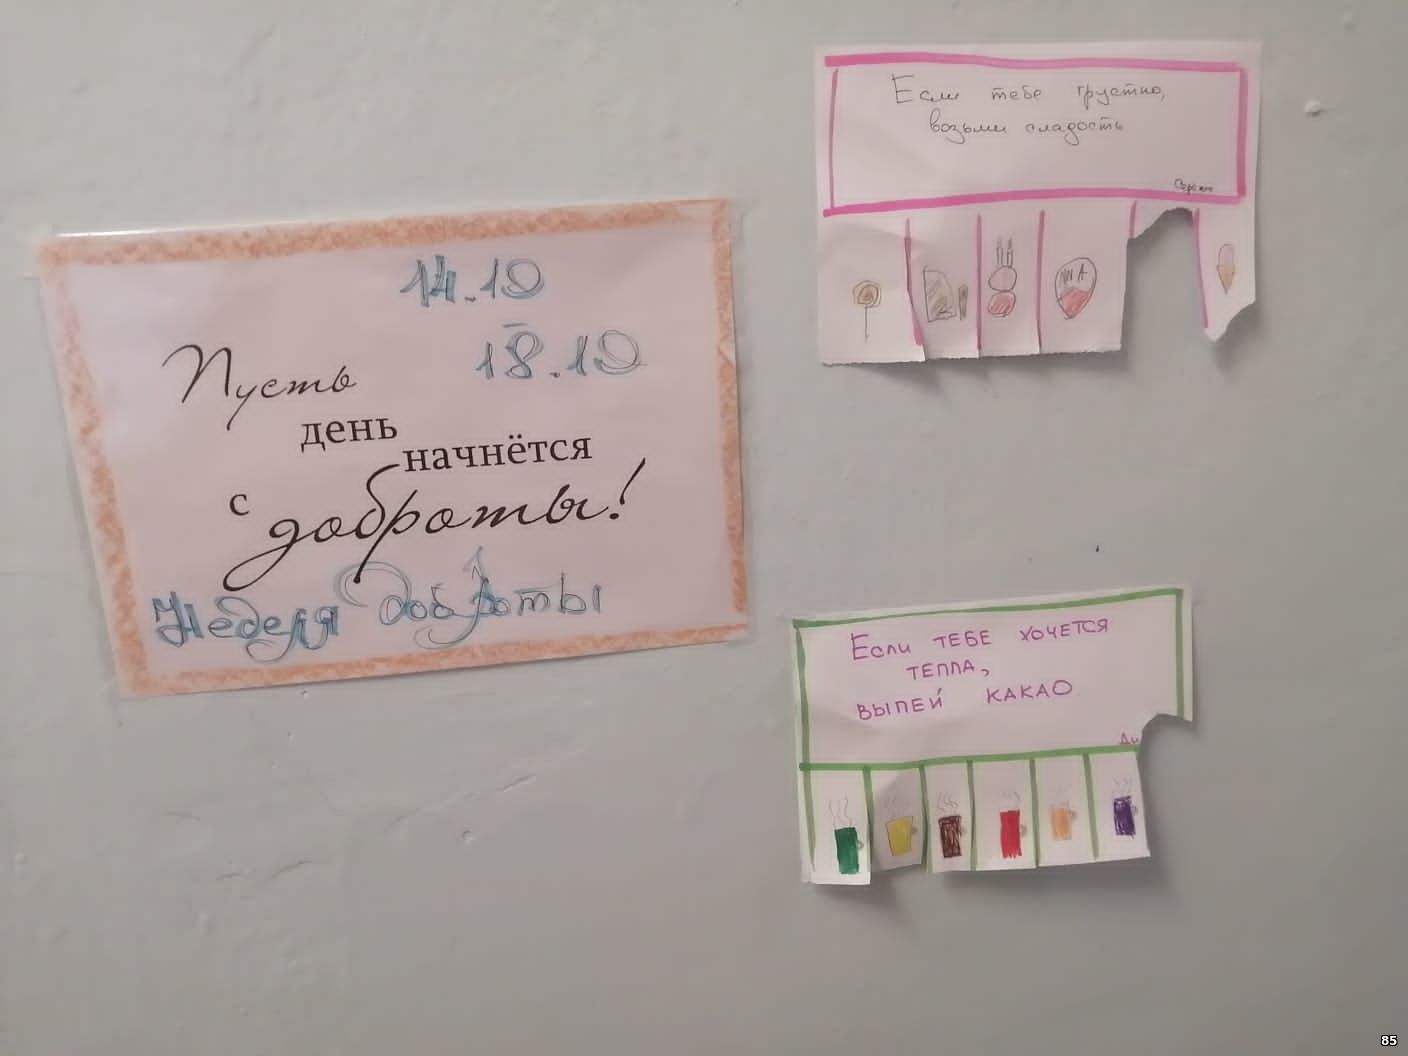 14.10
-
18.10
Пусть
день
начнётся
с доброты!
Неделя доброты
Если тебе грустно,
возьми сладость
Если тебе хочется
тепла,
выпей какао
Ди
85